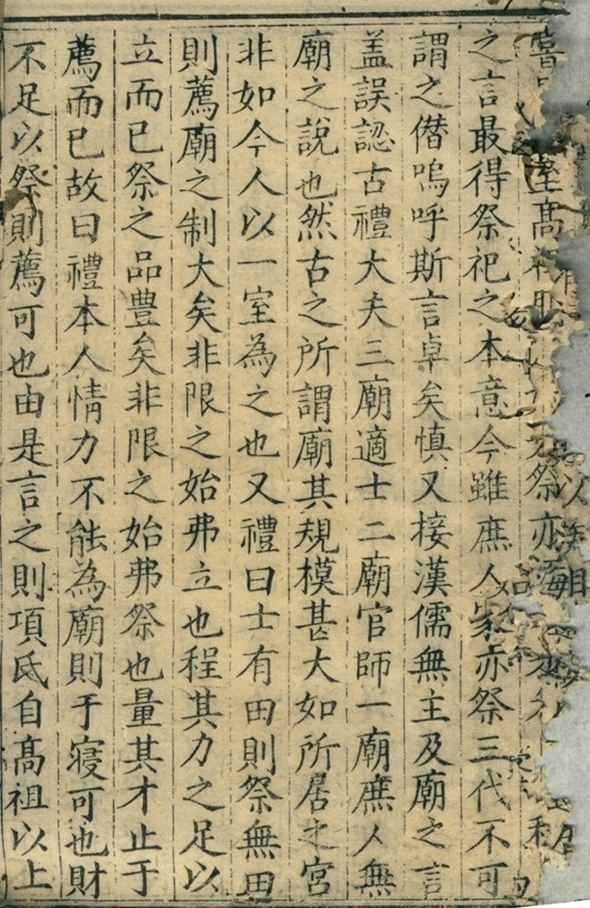 室高祖祭亦
之言最得祭祀之本意今雖庶人家亦祭三代不可
謂之僭嗚呼斯言卓矣慎又接漢儒無主及廟之言
盖誤認古禮大夫三廟適士二廟官師一廟庶人無
廟之說也然古之所謂廟其規模甚大如所居之宮
非如今人以一室為之也又禮曰士有田則祭無田
則薦廟之制大矣非限之始弗立也程其力之足以
立而已祭之品豊矣非限之始弗祭也量其才止于
薦而已故曰禮本人情力不能為廟則于寢可也財
不足以祭則薦可也由是言之則項氏自髙祖以上